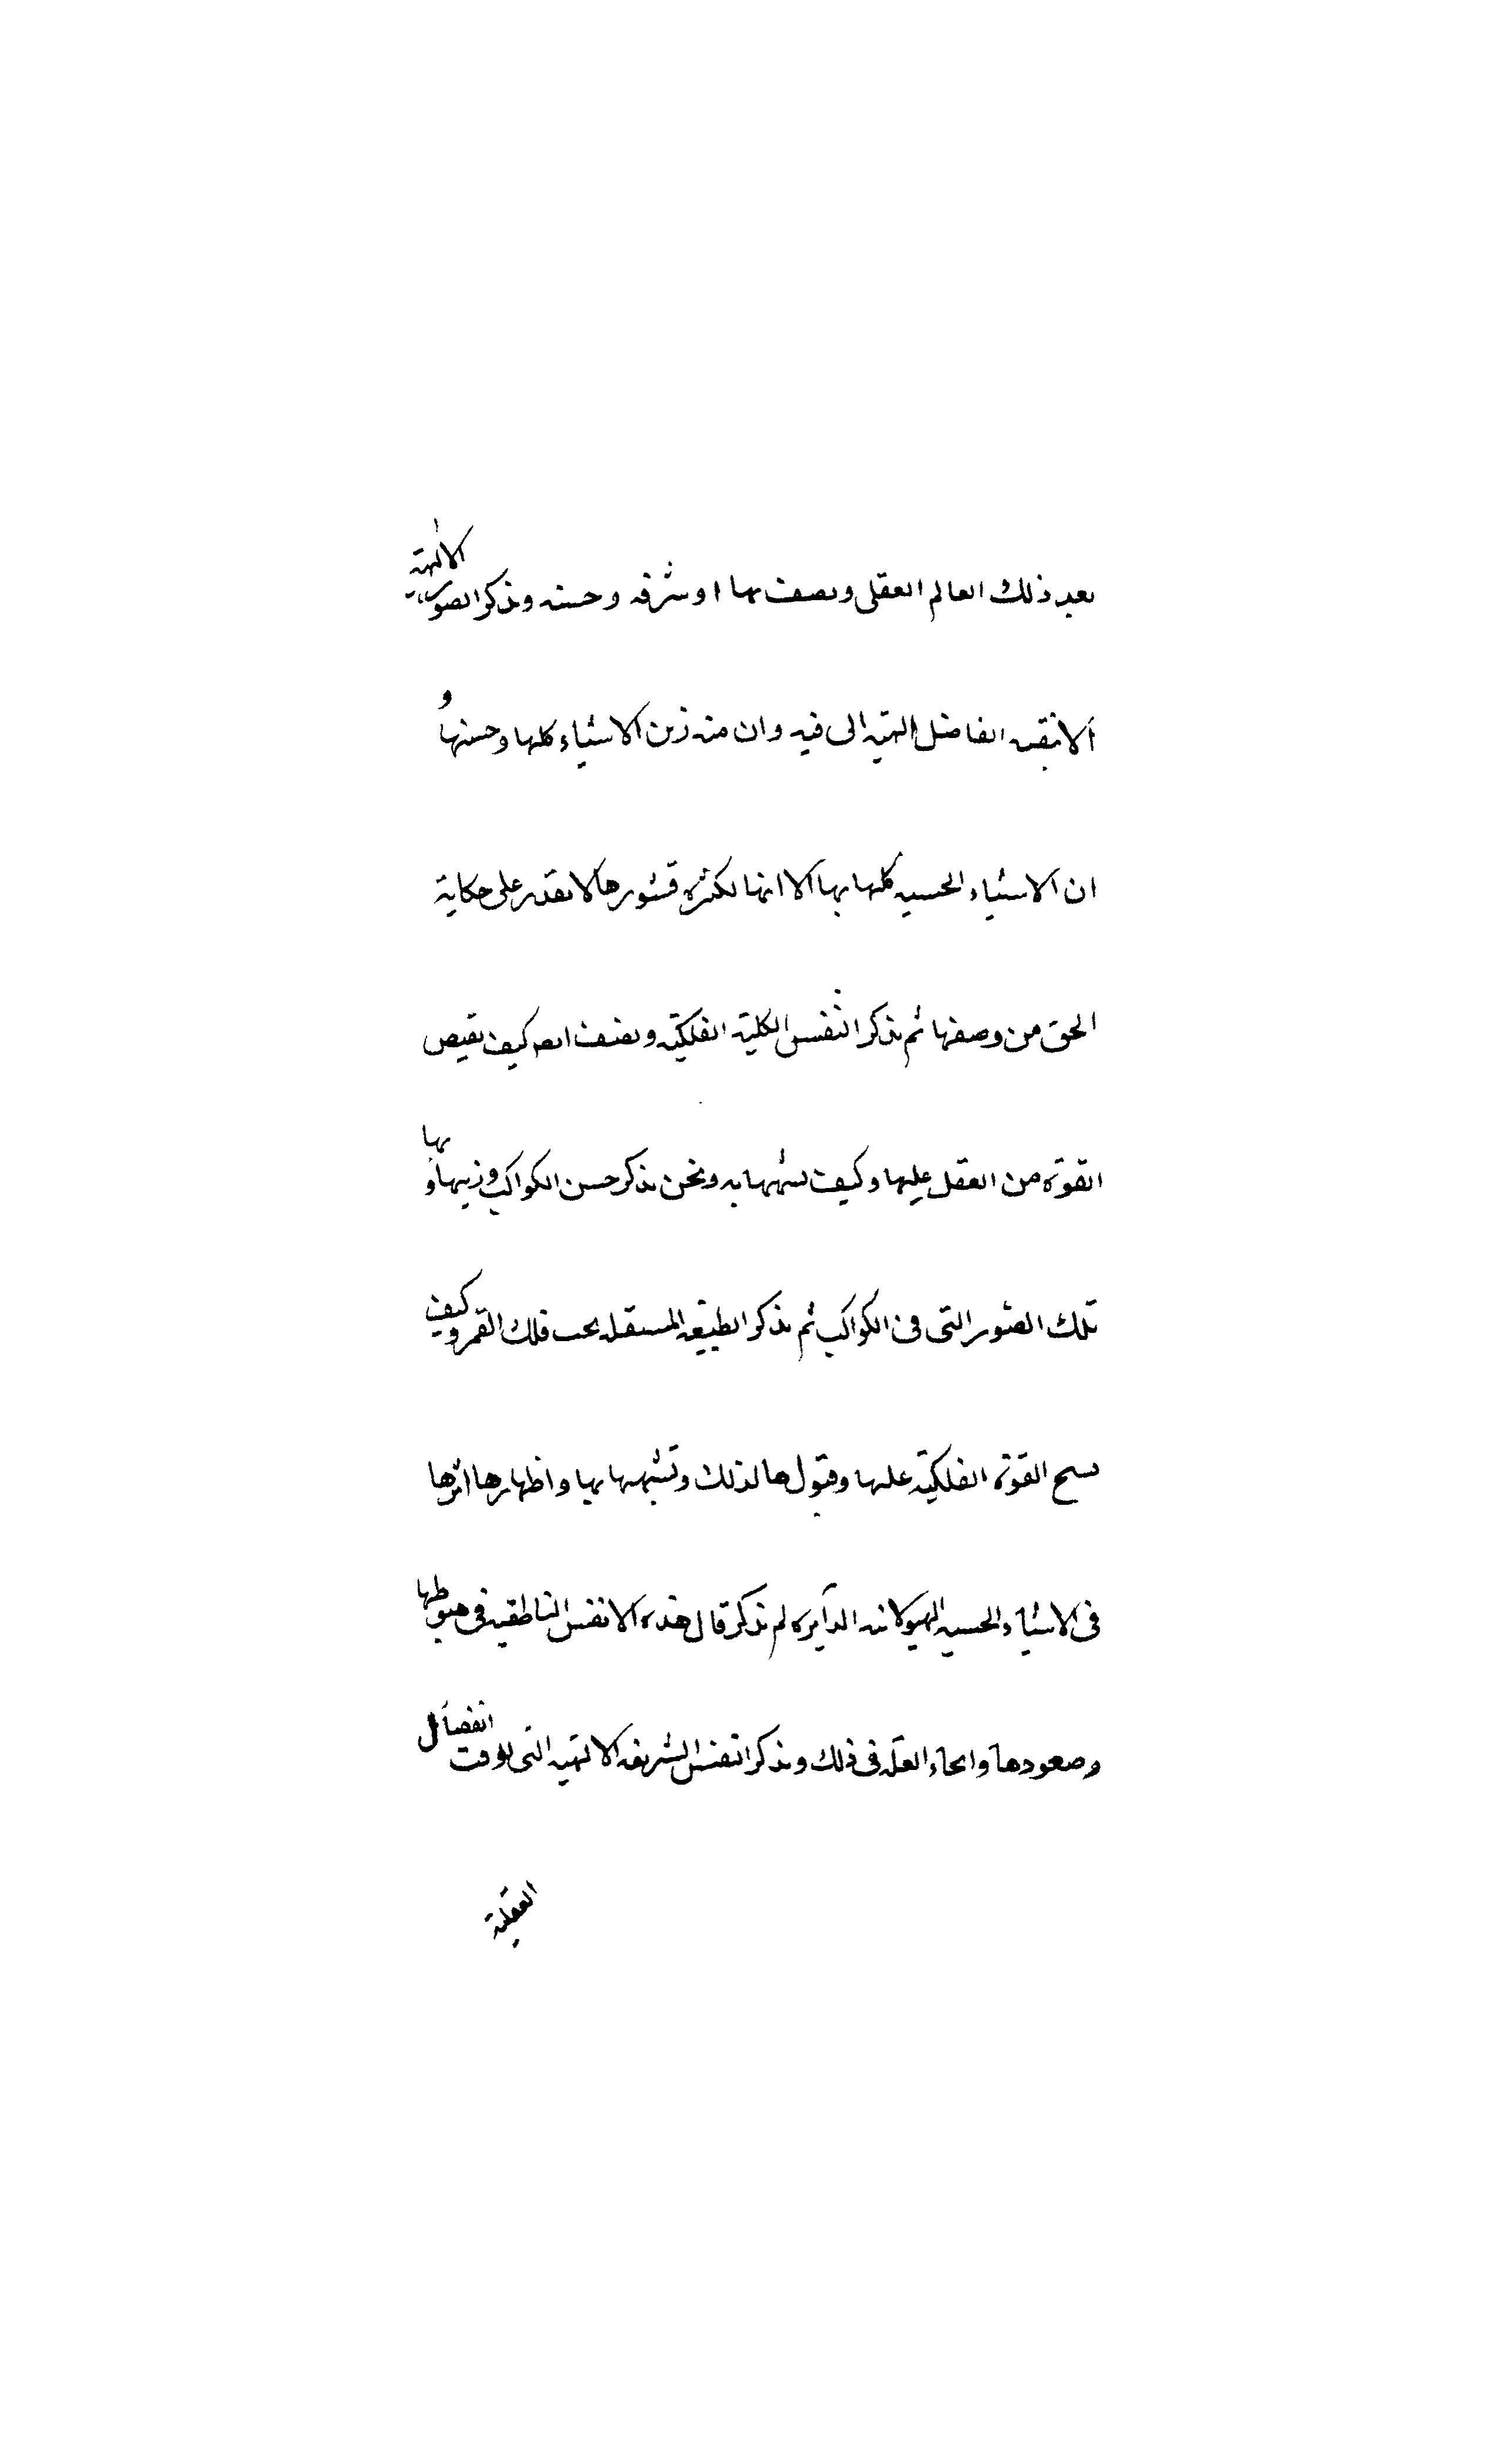 بعد ذلك العالم العقلى ونصف بها او شرفه وحسنه ونذكر الصور الالهية
الانيقه الفاضل الهيه الى فيه وان منه زين الاشياء كلها وحسنها و
ان الاشياء الحسيه كلها بها الا انها لكثره قشورها لا تقدر على حكاية
الحق من وصفها ثم نذكر النفس الكلية الفلكية ونصف ايضا كيف تفيض
القوة من العقل عليها وكيف تشبهها به ونحن نذكر حسن الكواكب وزينها وبها
تلك الصور التى فى الكواكب ثم نذكر الطبيعه المستقله تحت فلك القمر وكيف
تسح القوة الفلكية عليها وقبولها لذلك وتشبهها بها واظهارها اثرها
فى الاشياء الحسيه الهيولانيه الدآيره ثم نذكر قال هذه الانفس الناطقيه فى هبوطها
وصعودها واىحاد العله فى ذلك ونذكر النفس الشريفه الالهيه التى لوقت الفضآىل
العقلية